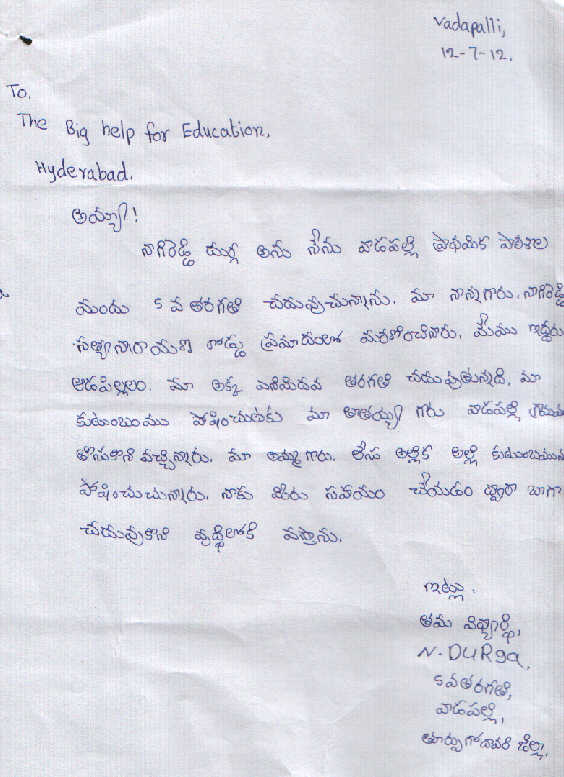 Vadapalli,
12-7-12.
To,
The Big help for Education,
Hyderabad.
అయ్యా!
నాగిరెడ్డి దుర్గ అను నేను వాడపల్లి ప్రాథమిక పాఠశాల
యందు 5వ తరగతి చదువుచున్నాను. మా నాన్నగారు. నాగిరెడ్డి
సత్యనారాయణ రోడ్డు ప్రమాదంలో మరణించినారు. మేము ఇద్దరు
ఆడపిల్లలం. మా అక్క ఎనిమిదవ తరగతి చదువుతున్నది. మా
కుటుంబము పోషించుటకు మా తాతయ్య గారు వాడపల్లి
తీసుకొని వచ్చినారు. మా అమ్మ గారు. లేసు అల్లిక అల్లి కుటుంబమును
పోషించుచున్నారు. నాకు మీరు సహాయం చేయడం ద్వారా బాగా
చదువుకొని వృద్ధిలోకి వస్తాను.
ఇట్లు.
తమ విద్యార్థి,
N. DURGa,
5వ తరగతి,
వాడపల్లి,
తూర్పుగోదావరి జిల్లా.